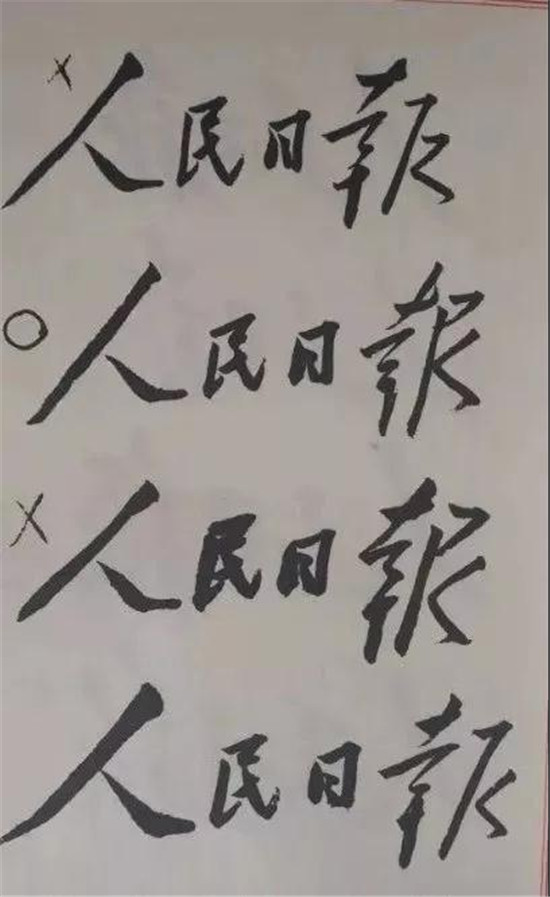 人民日報
人民日報
人民日報
人民日報